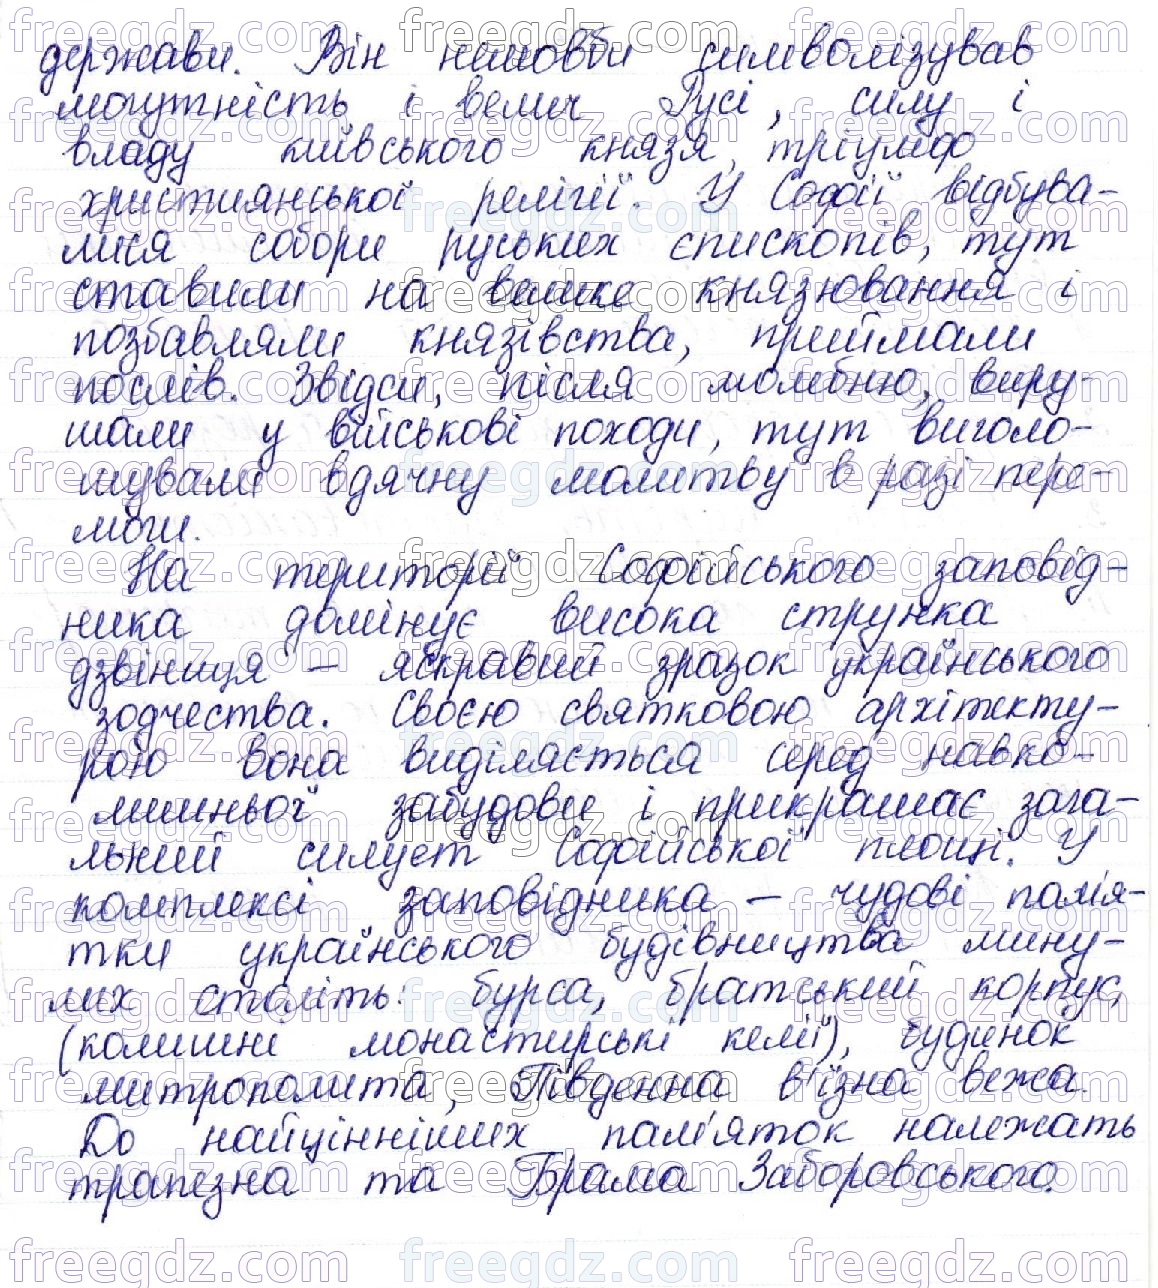 держави. Він немовби символізував
могутність і велич Русі, силу і
владу київського князя, тріумф
християнської релігії. У Софії відбува-
лися собори руських єпископів, тут
ставили на велике князювання і
позбавляли князівства, приймали
послів. Звідси, після молебню, виру-
шали у військові походи, тут виголо-
шували вдячну молитву в разі пере-
моги.
На території Софійського заповід-
ника домінує висока струнка
дзвіниця – яскравий зразок українського
зодчества. Своєю святковою архітекту-
рою вона виділяється серед навко-
лишньої забудови і прикрашає зага-
льний силует Софійської площі. У
комплексі заповідника – чудові пам'я-
тки українського будівництва мину-
лих століть: бурса, братський корпус,
(колишні монастирські келії), будинок
митрополита, Південна в'їзна вежа.
До найцінніших пам'яток належать
трапезна та Брама Заборовського.
freegdz.com freegdz.com freegdz.com